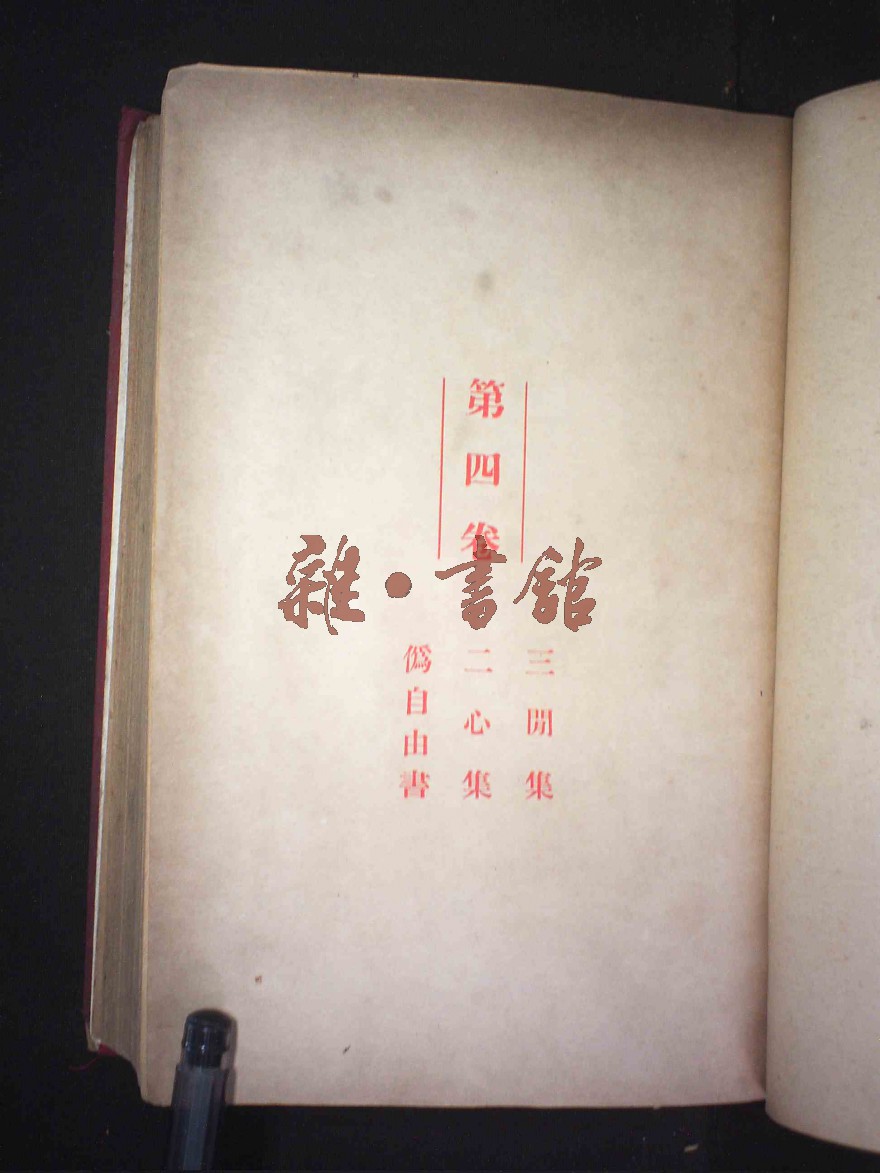 第四卷
三閒集
二心集
僞自由書
雜·書館